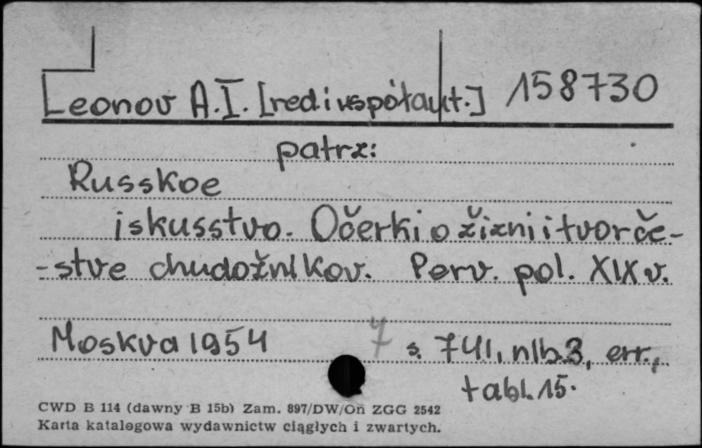 Leonov A.I. [red.i współaut.] 158730
patrz:
Russkoe
iskusstvo. Očerki o žizni i tvorče-
-stve chudožnikov. Perv. pol. XIX v.
Moskva 1954 7 s. 741, nlb.3, err.,
tabl. 15.
CWD B 114 (dawny B 15b) Zam. 897/DW/On ZGG 2542
Karta katalogowa wydawnictw ciągłych i zwartych.